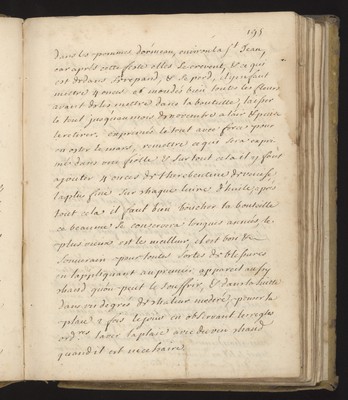 195
dans les pommes dormeau, environ la St Jean,
car après cette feste elles se crevent, & ce qui
est dedans s'erepand, & se perd, il y en faut
mettre 4 onces et mondés bien toutes les fleurs
avant de les mettre dans la bouteille, laisser
le tout jusqu'au mois de novembre alors & puis
le retirer, exprimés le tout avec force pour
en oster le marc, remettre ce qui sera expri
mé dans une fiolle & sur tout cela il y faut
ajouter 4 onces de therebentine de venise
la plus fine sur chaque livre d'huile, après
tout cela il faut bien boucher la bouteille
ce beaume se conservera longues années, le
plus vieux est les meilleur, il est bon &
souverain pour toutes sortes de blessures
en l'appliquant au premier appareil aussy
chaud qu'on peut le souffrir, & dans la suitte
dans un degrés de chaleur moderé, penser la
place 2 fois le jour en observant les regles
ordres laver la place avec du vin chaud
quand il est necessaire